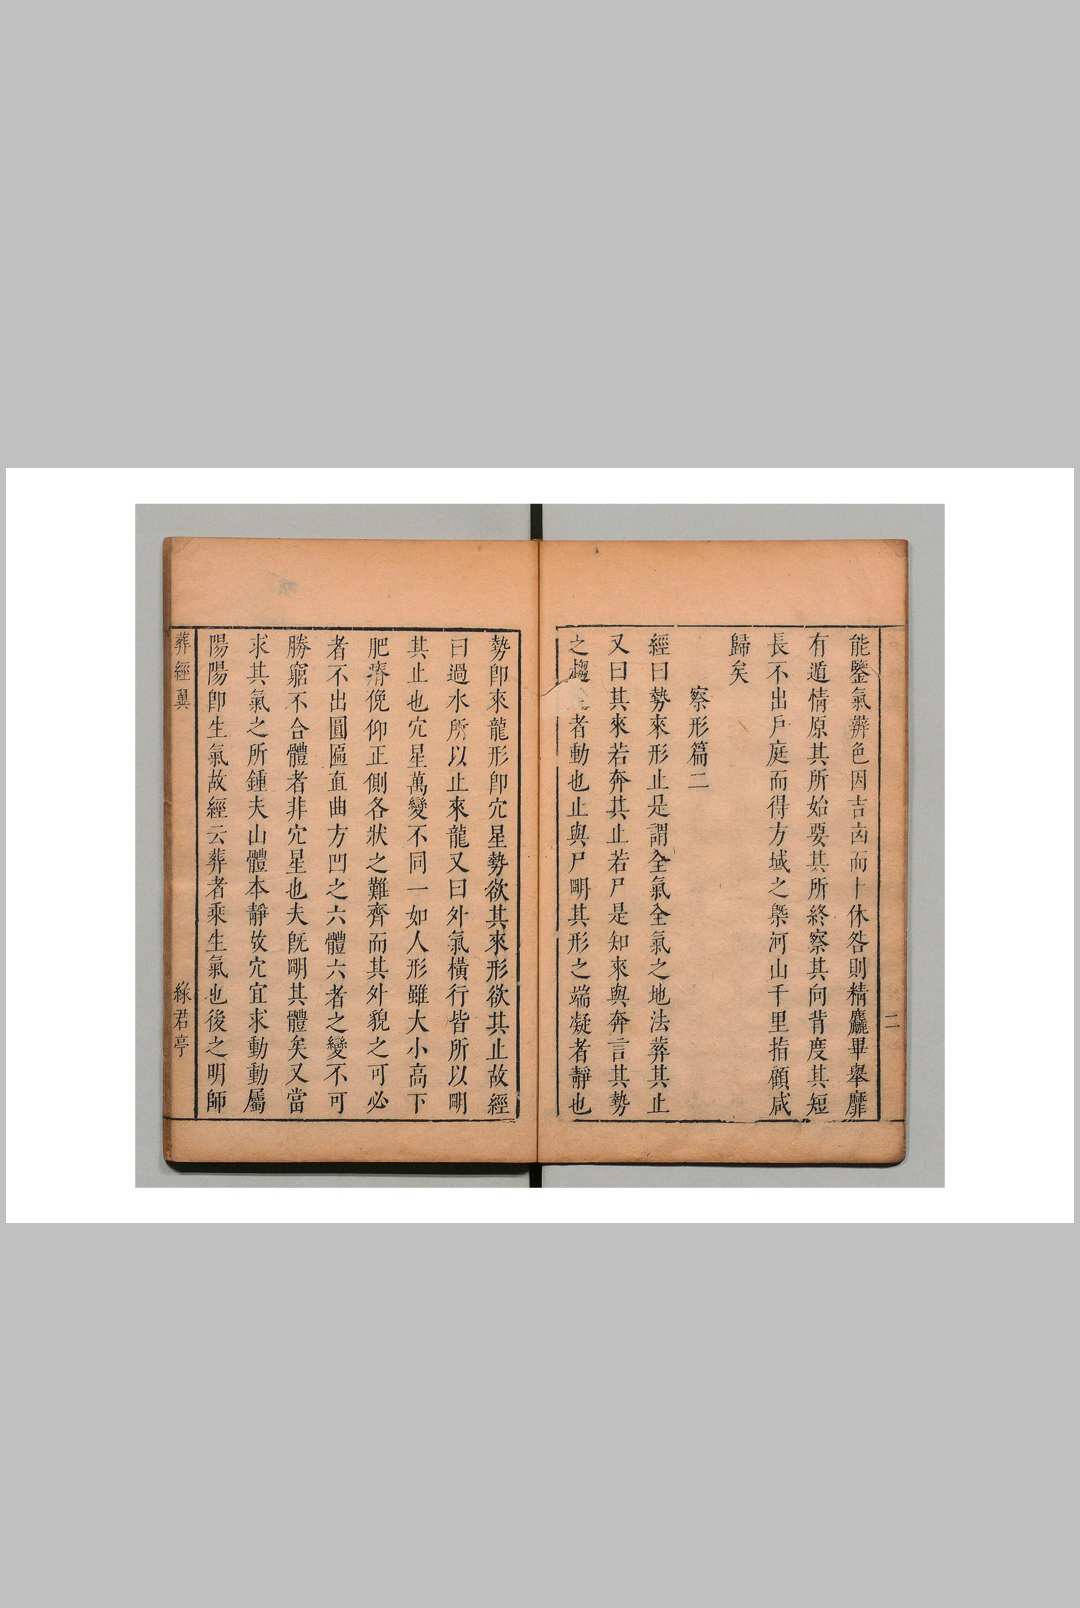 二
能鑒氣辨色因吉凶而卜休咎則精麤畢舉靡
有遁情原其所始要其所終察其向背度其短
長不出戶庭而得方域之槩河山千里指顧咸
歸矣
察形篇二
經曰勢來形止是謂全氣全氣之地法葬其止
又曰其來若奔其止若尸是知來與奔言其勢
之趨 者動也止與尸明其形之端凝者靜也
勢卽來龍形卽穴星勢欲其來形欲其止故經
曰過水所以止來龍又曰外氣橫行皆所以明
其止也穴星萬變不同一如人形雖大小高下
肥瘠俛仰正側各狀之難齊而其外貌之可必
者不出圓匾直曲方凹之六體六者之變不可
勝窮不合體者非穴星也夫旣明其體矣又當
求其氣之所鍾夫山體本靜故穴宜求動動屬
陽陽卽生氣故經云葬者乘生氣也後之明師
葬經翼
綠君亭